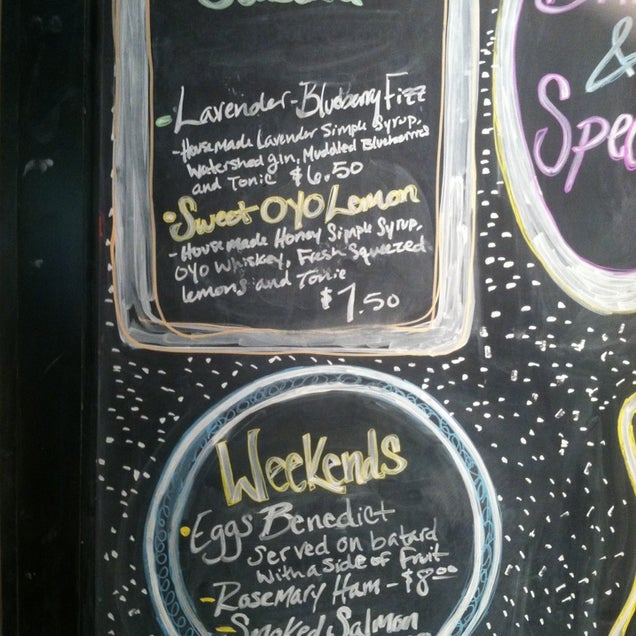 • Lavender-Blueberry Fizz
- Housemade Lavender Simple Syrup,
Watershed gin, Muddled Blueberries
and Tonic $6.50
• Sweet OYO Lemon
- Housemade Honey Simple Syrup,
OYO Whiskey, Fresh Squeezed
lemons and Tonic
$7.50
&
Spe
Weekends
• Eggs Benedict
Served on batard
with a side of Fruit
- Rosemary Ham - $8.00
- Smoked Salmon